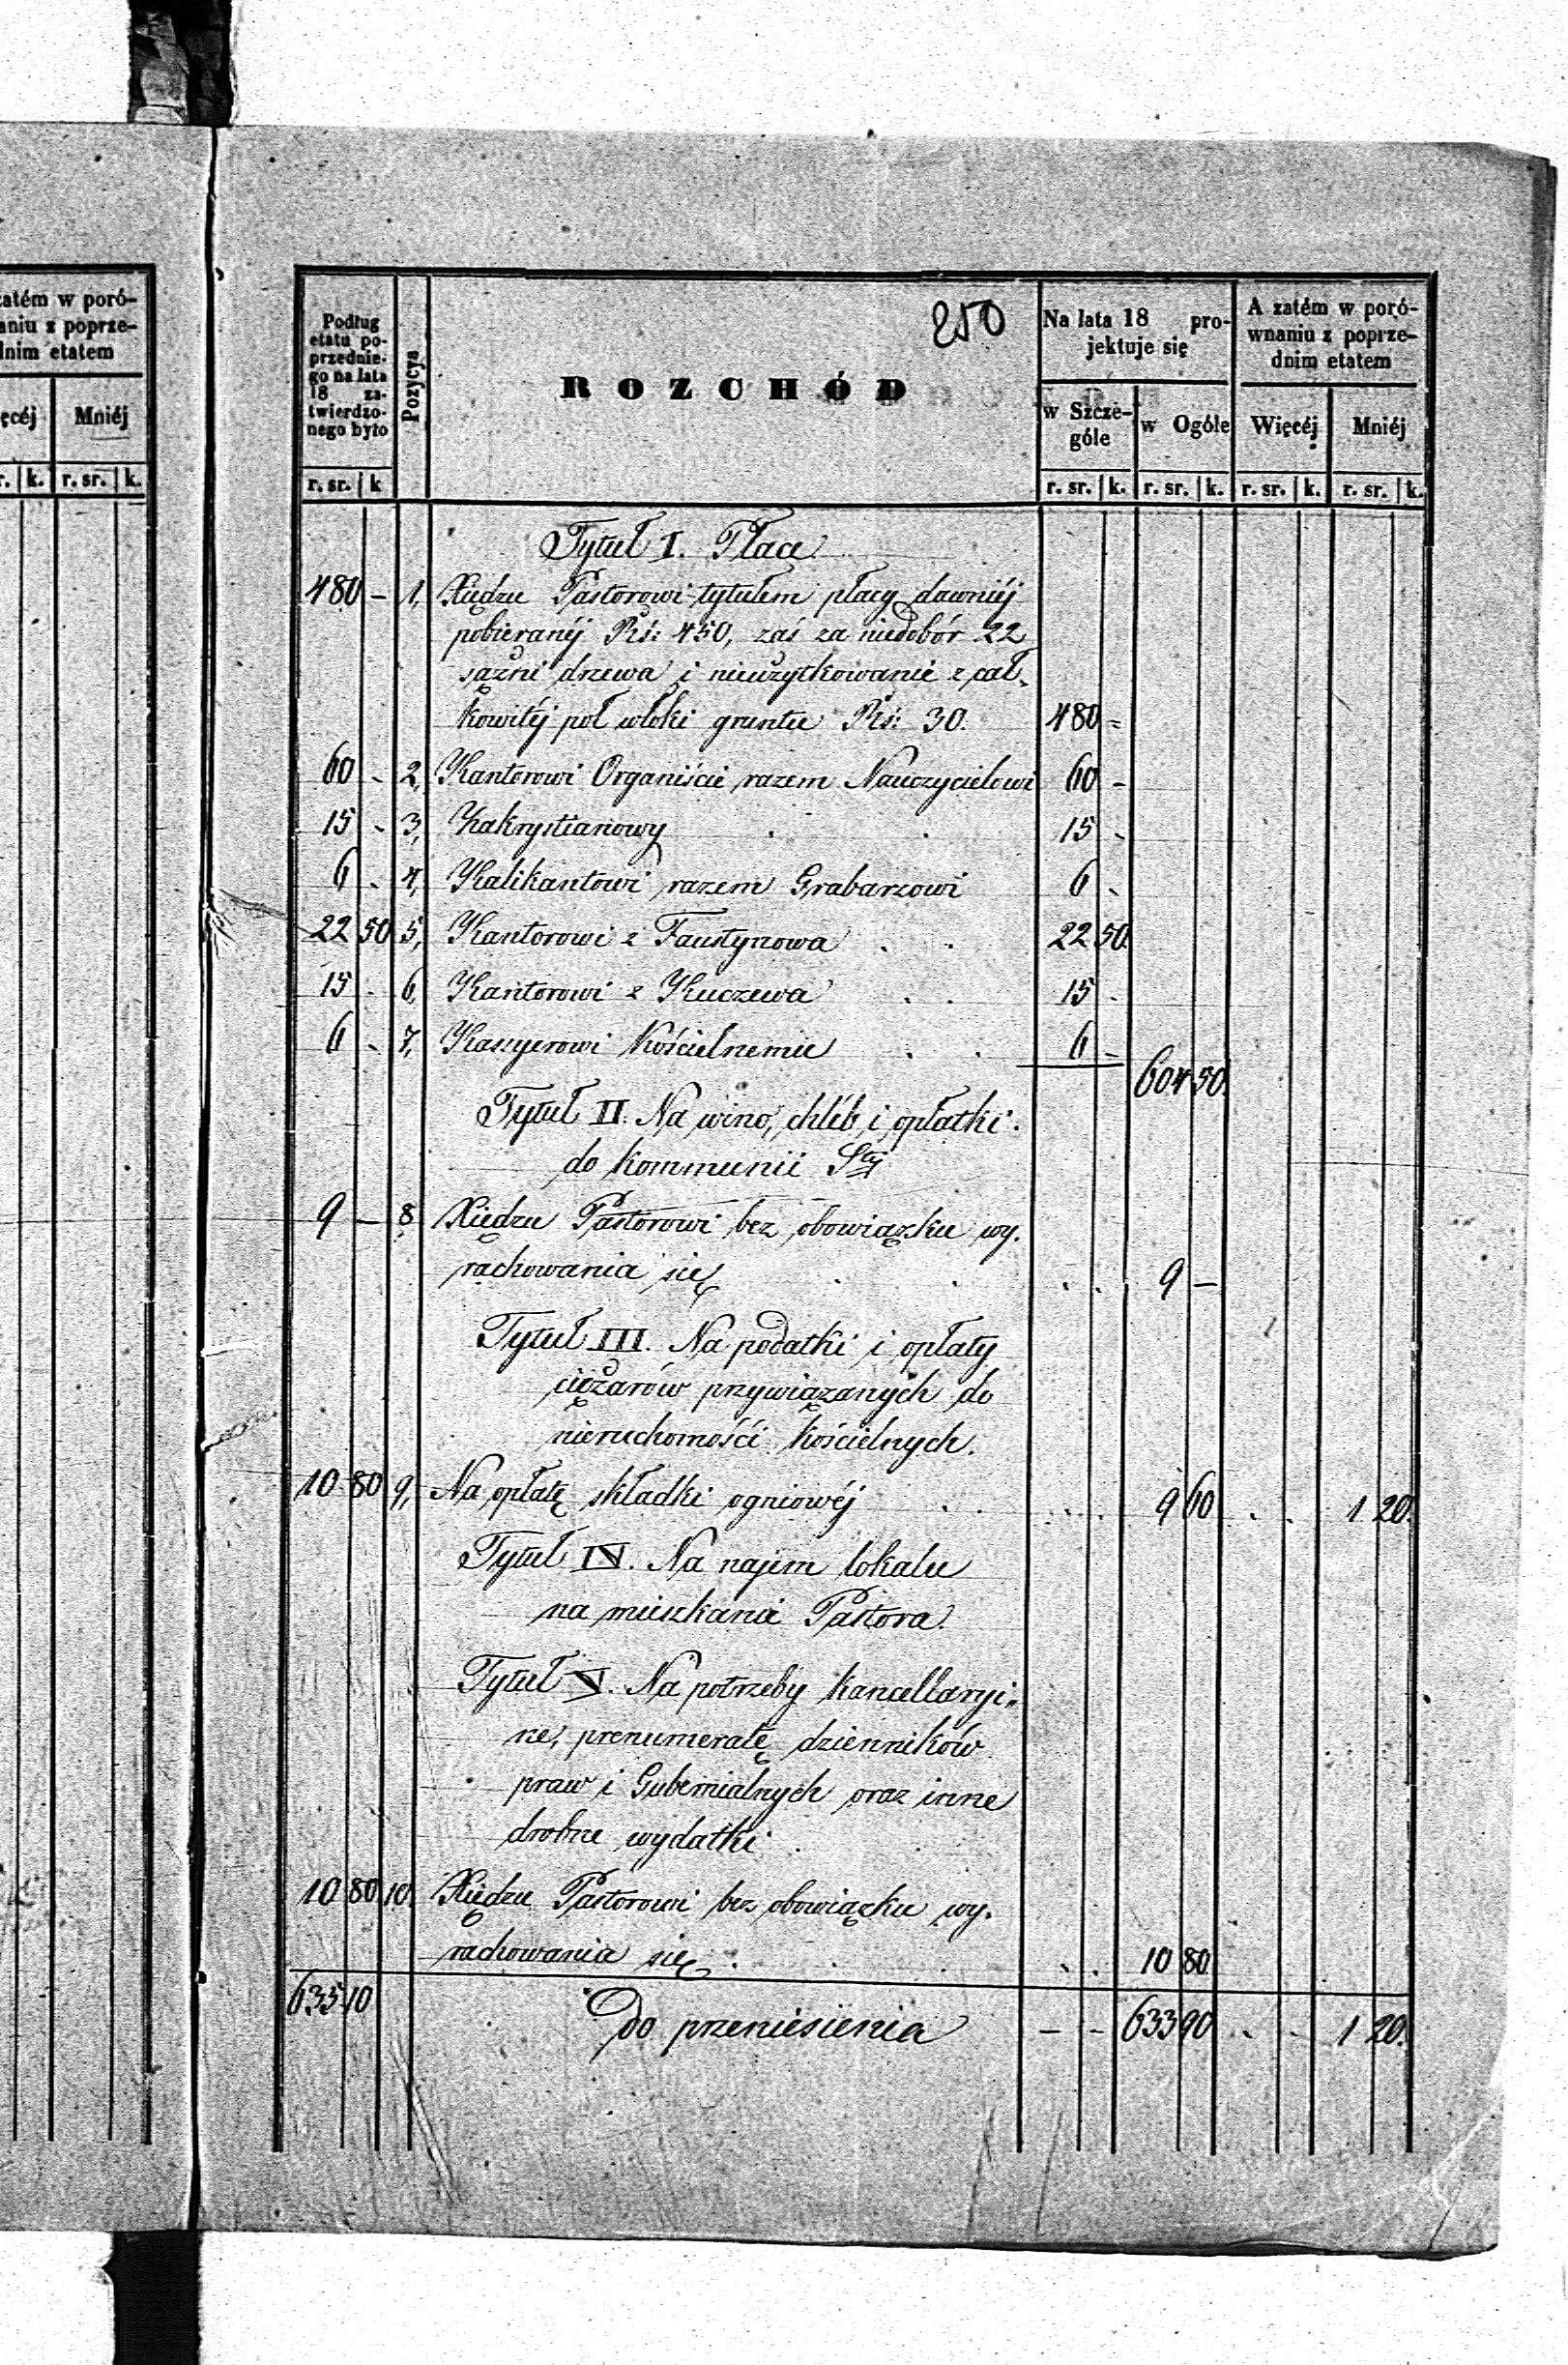 zatém w poró-
naniu z poprze-
dnim etatem
ęcéj Mniéj
r. k. r. sr. k.
250
Podług
etatu po-
przednie-
go na lata
18 za-
twierdzo-
nego było
Pozycya
ROZCHÓD
Na lata 18 pro-
jektuje się
A zatém w poró-
wnaniu z poprze-
dnim etatem
w Szcze-
góle
w Ogóle
Więcéj
Mniéj
r. sr. k r. sr. k. r. sr. k. r. sr. k. r. sr. k.
Tytuł I. Płace
480 – 1, Xiędzu Pastorowi tytułem płacy dawniéj
pobieranéj Rś: 450, zaś za niedobór 22
sążni drzewa i nieużytkowanie z cał-
kowitéj poł włoki gruntu Rś: 30. 480 =
60 - 2, Kantorowi Organiście razem Nauczycielowi 60 -
15 - 3, Zakrystianowy . . 15 -
6 - 4, Kalikantowi razem Grabarzowi 6 -
22 50 5, Kantorowi z Faustynowa . . 22 50.
15 . 6, Kantorowi z Kuczewa . . 15 .
6 - 7, Kassyerowi Kościelnemu . . 6 -
604 50.
Tytuł II. Na wino, chléb i opłatki
do Kommunii Stéj
9 – 8 Xiędzu Pastorowi bez obowiązku wy-
rachowania się . . . . 9 –
Tytuł III. Na podatki i opłaty
ciężarów przywiązanych do
nieruchomości Kościelnych.
10 80 9, Na opłatę składki ogniowéj . . . . 9 60 . . 1 20.
Tytuł IV. Na najem lokalu
na mieszkanie Pastora.
Tytuł V. Na potrzeby Kancellaryi-
ne, prenumeratę dzienników
praw i Gubernialnych oraz inne
drobne wydatki
10 80 10. Xiędzu Pastorowi bez obowiązku wy-
rachowania się . . . . 10 80
635 10 Do przeniesienia – - 633 90 . . 1 20.